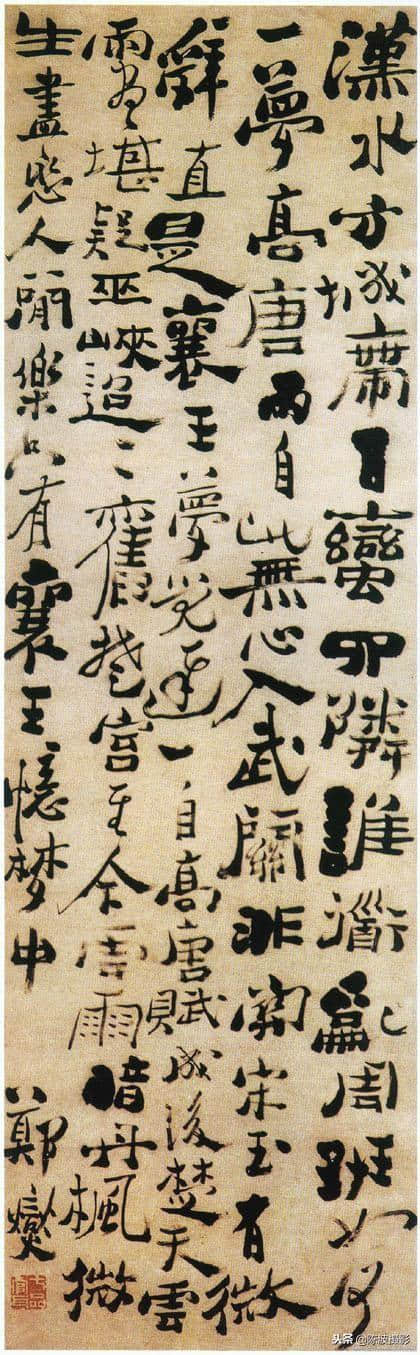 漢水方城帶百蠻四隣誰道亂周班如何
一夢高唐雨自此無心入武關非關宋玉有微
辭直是襄王夢覺遲一自高唐賦成後楚天雲
雨盡堪疑巫峽迢〻舊楚宮至今雲雨暗丹楓微
生盡戀人間樂只有襄王憶梦中
鄭燮
头条 @陈波摄影